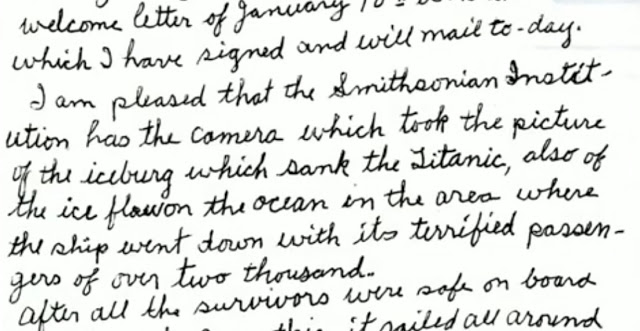 welcome letter of January
which I have signed and will mail to-day.
I am pleased that the Smithsonian Instit-
ution has the camera which took the picture
of the iceburg which sank the Titanic, also of
the ice flow on the ocean in the area where
the ship went down with its terrified passen-
gers of over two thousand..
After all the survivors were safe on board
this, it sailed all around